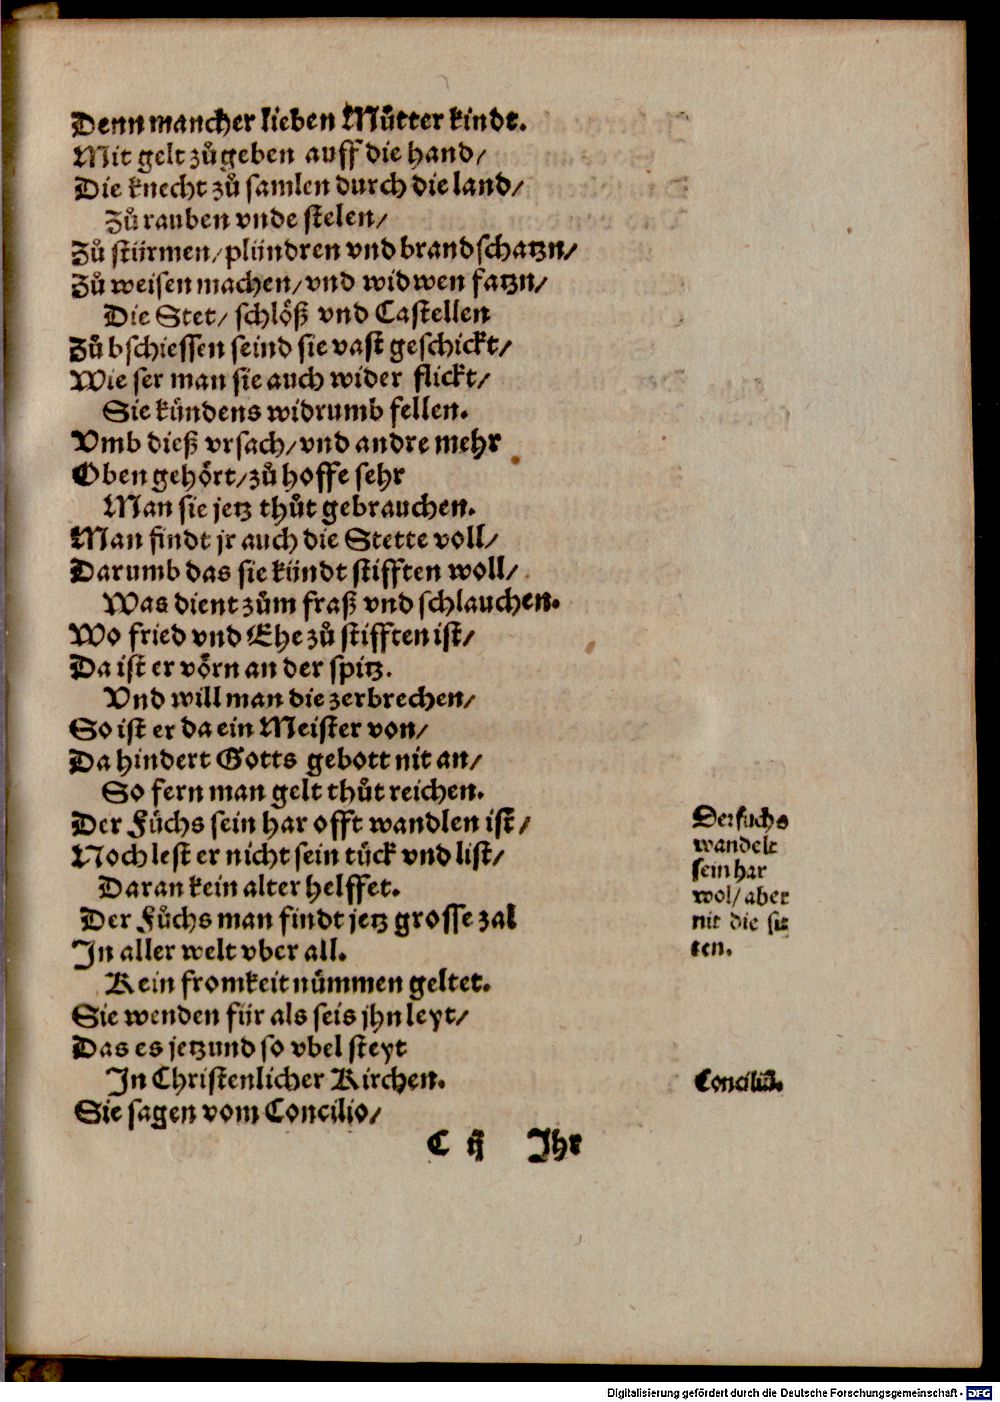 Denn mancher lieben Můtter kindt.
Mit gelt zů geben auff die hand/
Die knecht zů samlen durch die land/
Zů rauben vnde stelen/
Zů stürmen/ plündren vnd brandschatzn/
Zů weisen machen/ vnd widwen fatzn/
Die Stet/ schlöß vnd Castellen
Zů bschiessen seind sie vast geschickt/
Wie ser man sie auch wider flickt/
Sie kündens widrumb fellen.
Vmb dieß vrsach/ vnd andre mehr
Oben gehört/ zů hoffe sehr
Man sie jetz thůt gebrauchen.
Man findt jr auch die Stette voll/
Darumb das sie kündt stifften woll/
Was dient zům fraß vnd schlauchen.
Wo fried vnd Ehe zů stifften ist/
Da ist er vörn an der spitz.
Vnd will man die zerbrechen/
So ist er da ein Meister von/
Da hindert Gotts gebott nit an/
So fern man gelt thůt reichen.
Der Fůchs sein har offt wandlen ist/
Noch lest er nicht sein tück vnd list/
Daran kein alter helffet.
Der Fůchs man findt jetz grosse zal
In aller welt vber all.
Kein fromkeit nümmen geltet.
Sie wenden für als seis jhn leyt/
Das es jetzund so vbel steyt
In Christenlicher Kirchen.
Sie sagen vom Concilio/
C ij Ihr
Der fuchs
wandelt
sein har
wol/ aber
nit die sit
ten.
Conciliū.
Digitalisierung gefördert durch die Deutsche Forschungsgemeinschaft - DFG